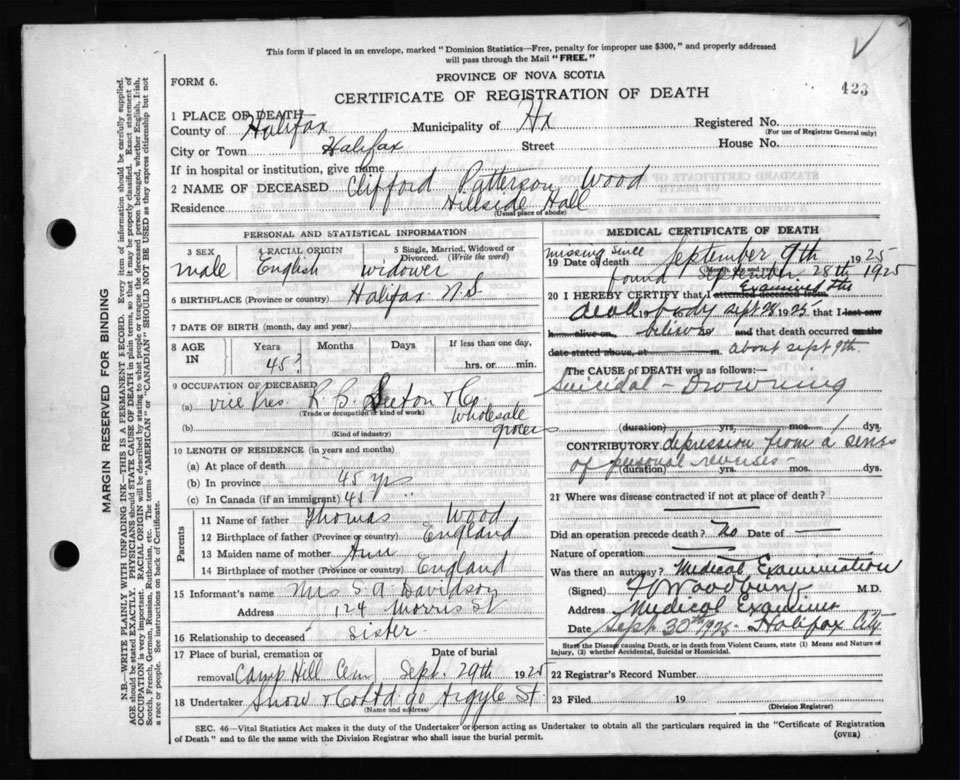 This form if placed in an envelope, marked "Dominion Statistics—Free, penalty for improper use $300," and properly addressed
will pass through the Mail "FREE."
FORM 6.
PROVINCE OF NOVA SCOTIA
423
CERTIFICATE OF REGISTRATION OF DEATH
1 PLACE OF DEATH
County of Halifax Municipality of Hx Registered No.
(For use of Registrar General only)
City or Town Halifax Street House No.
If in hospital or institution, give name
2 NAME OF DECEASED Clifford Patterson Wood
Residence Hillside Hall
(Usual place of abode)
PERSONAL AND STATISTICAL INFORMATION
3 SEX 4 RACIAL ORIGIN 5 Single, Married, Widowed or
Divorced. (Write the word)
male English widower
6 BIRTHPLACE (Province or country) Halifax N.S.
7 DATE OF BIRTH (month, day and year)
8 AGE IN Years Months Days If less than one day,
45? hrs. or min.
9 OCCUPATION OF DECEASED
(a) vice Pres & Co
(Trade or occupation or kind of work)
wholesale
(b) grocers
(Kind of industry)
10 LENGTH OF RESIDENCE (in years and months)
(a) At place of death
(b) In province 45 yrs
(c) In Canada (if an immigrant) 45
Parents
11 Name of father Thomas Wood
12 Birthplace of father (Province or country) England
13 Maiden name of mother Ann
14 Birthplace of mother (Province or country) England
15 Informant's name Mrs S. A Davidson
Address 124 Morris St
16 Relationship to deceased Sister
17 Place of burial, cremation or Date of burial
removal Camp Hill Cem Sept. 29th 1925
18 Undertaker Snow & Co Ltd 90 Argyle St
(Name and address)
MEDICAL CERTIFICATE OF DEATH
missing since September 9th 1925
19 DATE OF DEATH
(Month, day and year)
found September 28th 1925
Examined the
20 I HEREBY CERTIFY that I attended deceased from
dead body Sept 28 1925 that I last saw
h alive on believe and that death occurred on the
date stated above, at m. about Sept 9th.
The CAUSE OF DEATH was as follows:
Suicidal - Drowning
(duration) yrs. mos. dys.
CONTRIBUTORY depression from a sense
of personal reverses -
(duration) yrs. mos. dys.
21 Where was disease contracted if not at place of death?
Did an operation precede death? No Date of
Nature of operation
Was there an autopsy? Medical Examination
(Signed) Woodbury M.D.
Address Medical Examiner
Date Sept 30th 1925 - Halifax City
State the Disease causing Death, or in death from Violent Causes, state (1) Means and Nature of
Injury, (2) whether Accidental, Suicidal or Homicidal.
22 Registrar's Record Number
23 Filed 19
(Division Registrar)
SEC. 46—Vital Statistics Act makes it the duty of the Undertaker or person acting as Undertaker to obtain all the particulars required in the "Certificate of Registration
of Death" and to file the same with the Division Registrar who shall issue the burial permit.
(OVER)
MARGIN RESERVED FOR BINDING
N.B.—WRITE PLAINLY WITH UNFADING INK—THIS IS A PERMANENT RECORD. Every item of information should be carefully supplied.
AGE should be stated EXACTLY. PHYSICIANS should STATE CAUSE OF DEATH in plain terms, so that it may be properly classified. Exact statement of
OCCUPATION is very important. RACIAL ORIGIN will be described by stating to what people or tongue the deceased person belonged, whether English, Irish,
Scotch, French, German, Russian, Ruthenian, etc. The terms "AMERICAN" or "CANADIAN" SHOULD NOT BE USED as they express citizenship but not
a race or people. See instructions on back of Certificate.